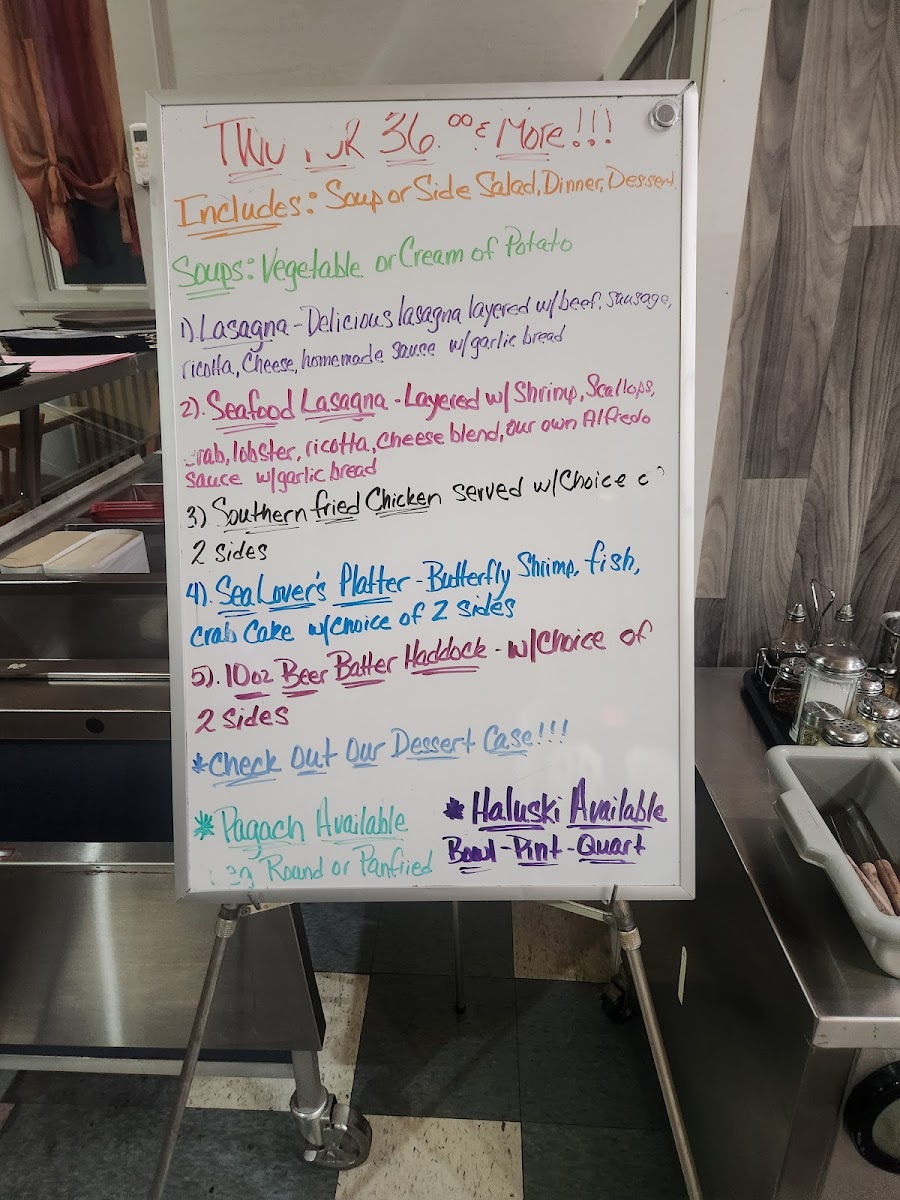 36.00 & More!!!
Includes: Soup or Side Salad, Dinner, Dessert
Soups: Vegetable or Cream of Potato
1) Lasagna - Delicious lasagna layered w/ beef, sausage,
ricotta, Cheese, homemade sauce w/garlic bread
2). Seafood Lasagna - Layered w/ Shrimp, Scallops,
crab, lobster, ricotta, cheese blend, our own Alfredo
sauce w/garlic bread
3) Southern fried Chicken served w/Choice
2 sides
4). SeaLover's Platter - Butterfly Shrimp, fish,
crab cake w/choice of 2 sides
5). 10oz Beer Batter Haddock - w/Choice of
2 sides
*Check Out Our Dessert Case!!!
* Pagach Available
Round or Panfried
* Haluski Available
Bowl - Pint - Quart